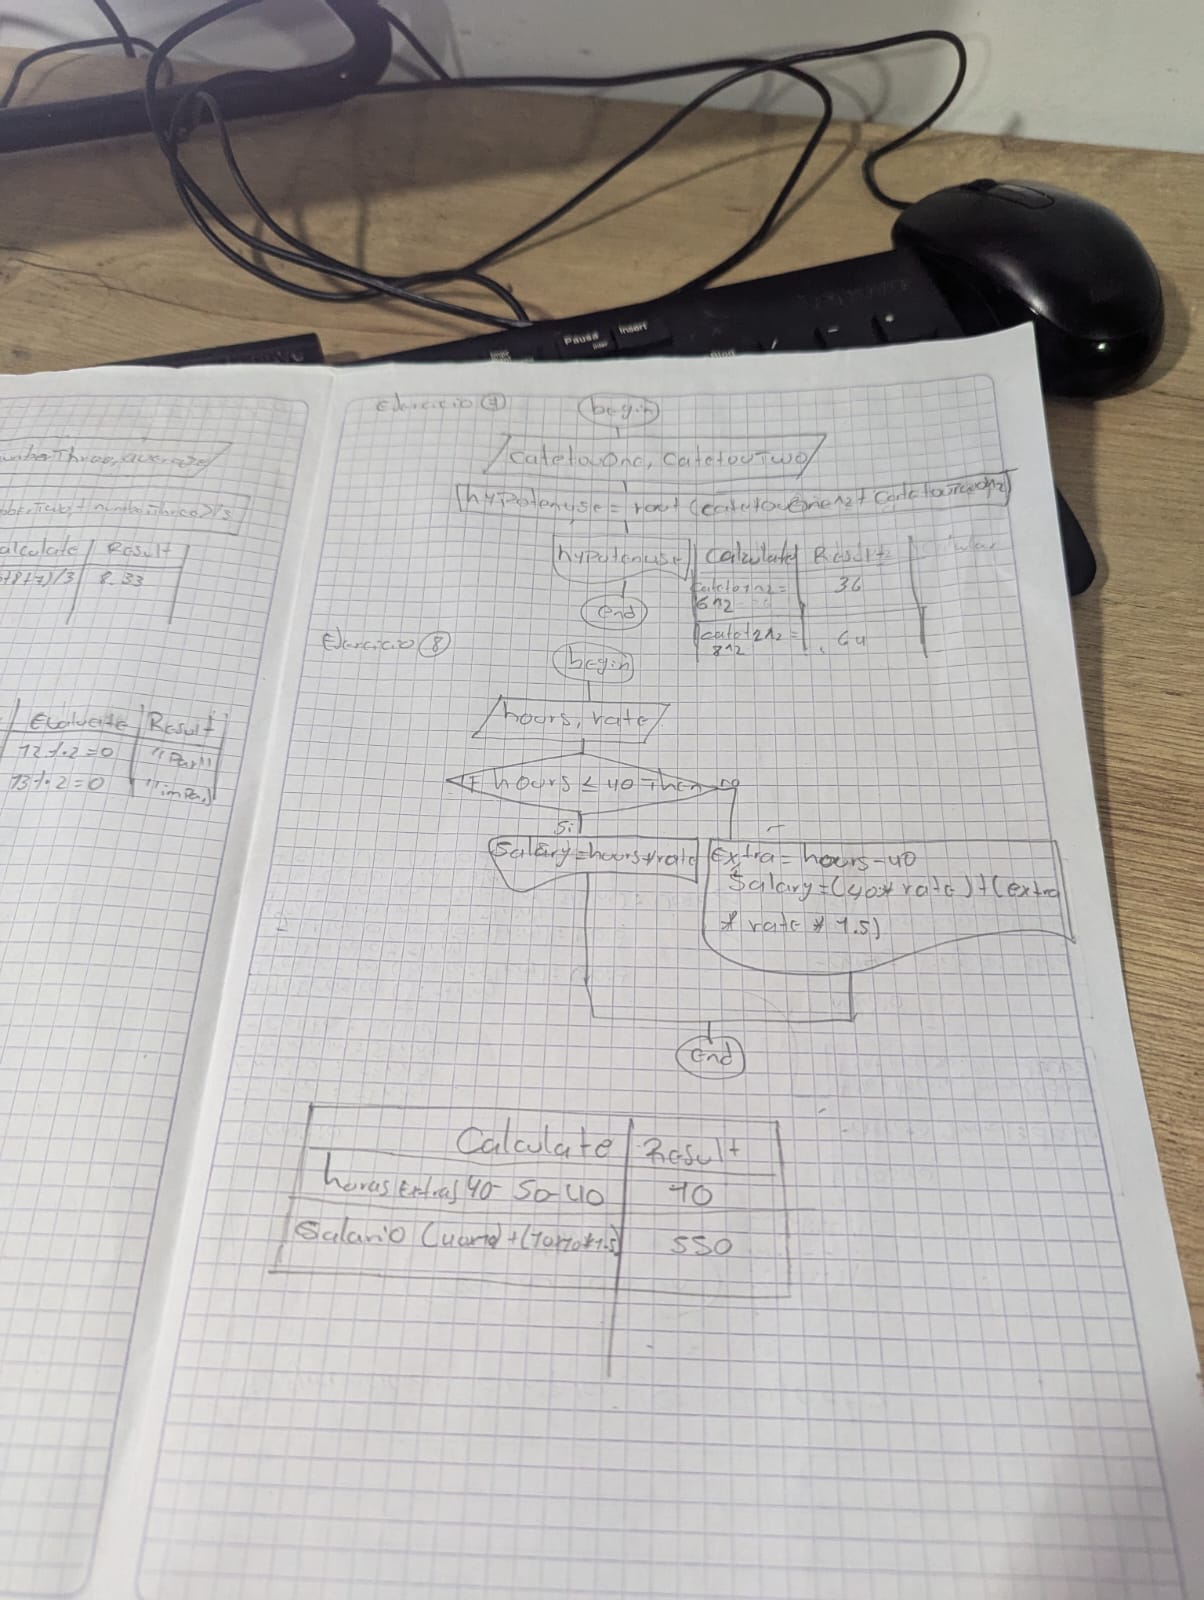 Pausa
Insert
average
Calculate Result
/3 8.33
Evaluate Result
12%2=0 "Par"
13%2=0 "impar"
Ejercicio 7
begin
catetouOne, catetouTwo
hypotenuse = root (catetouOne^2 + catetouTwo^2)
hypotenuse
Calculate Result
36
6^2
catet2^2= 64
8^2
end
Ejercicio 8
begin
hours, rate
If hours ≤ 40 Then no
Si
Salary=hours*rate
Extra = hours-40
Salary=(40* rate)+(extra
* rate * 1.5)
End
Calculate Result
horas Extras 40- 50-40 10
Salario +(10*10*1.5) 550